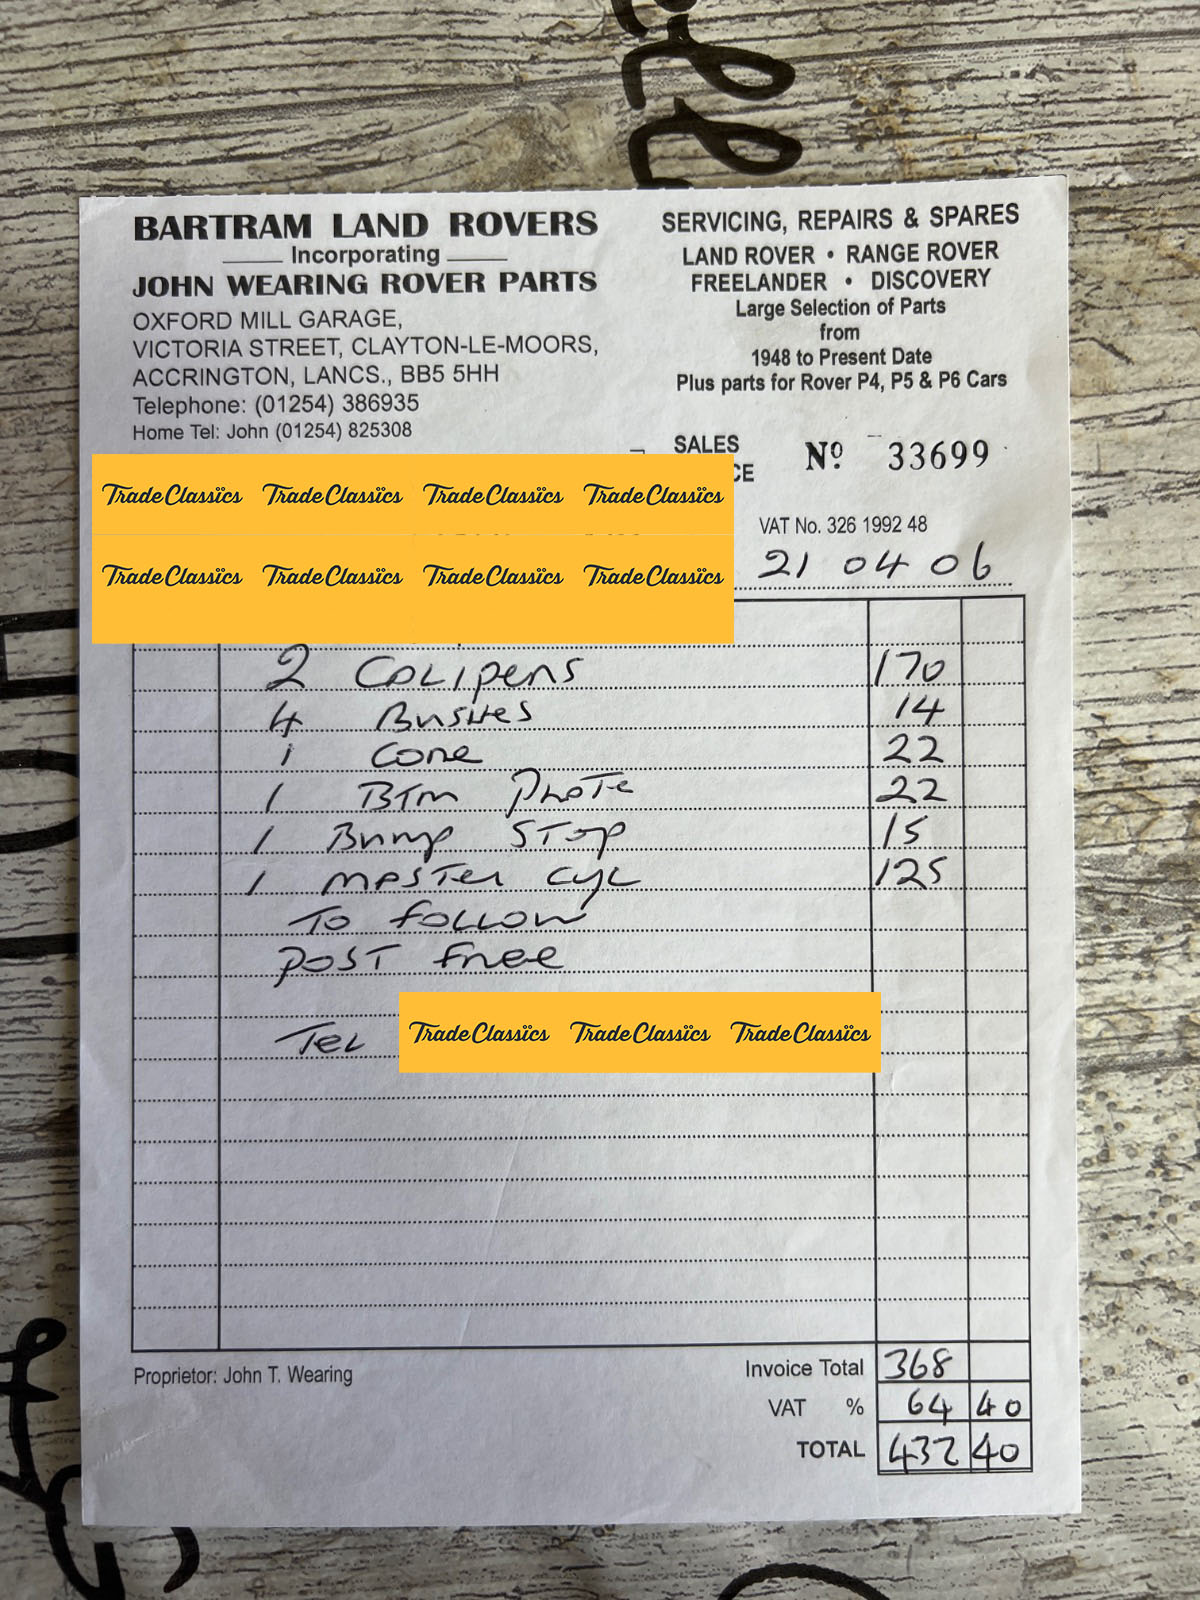 BARTRAM LAND ROVERS
Incorporating
JOHN WEARING ROVER PARTS
OXFORD MILL GARAGE,
VICTORIA STREET, CLAYTON-LE-MOORS,
ACCRINGTON, LANCS., BB5 5HH
Telephone: (01254) 386935
Home Tel: John (01254) 825308
SERVICING, REPAIRS & SPARES
LAND ROVER • RANGE ROVER
FREELANDER • DISCOVERY
Large Selection of Parts
from
1948 to Present Date
Plus parts for Rover P4, P5 & P6 Cars
SALES
CE
Nº 33699
TradeClassics TradeClassics TradeClassics TradeClassics
TradeClassics TradeClassics TradeClassics TradeClassics
VAT No. 326 1992 48
21 04 06
2 CALIPERS 170
4 BUSHES 14
1 CONE 22
1 BTM PLATE 22
1 BUMP STOP 15
1 MASTER CYL 125
TO FOLLOW
POST FREE
TEL TradeClassics TradeClassics TradeClassics
Proprietor: John T. Wearing
Invoice Total 368
VAT % 64 40
TOTAL 432 40